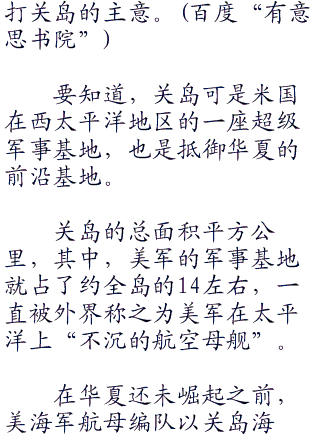 打关岛的主意。(百度“有意
思书院”)
要知道，关岛可是米国
在西太平洋地区的一座超级
军事基地，也是抵御华夏的
前沿基地。
关岛的总面积平方公
里，其中，美军的军事基地
就占了约全岛的14左右，一
直被外界称之为美军在太平
洋上“不沉的航空母舰”。
在华夏还未崛起之前，
美海军航母编队以关岛海